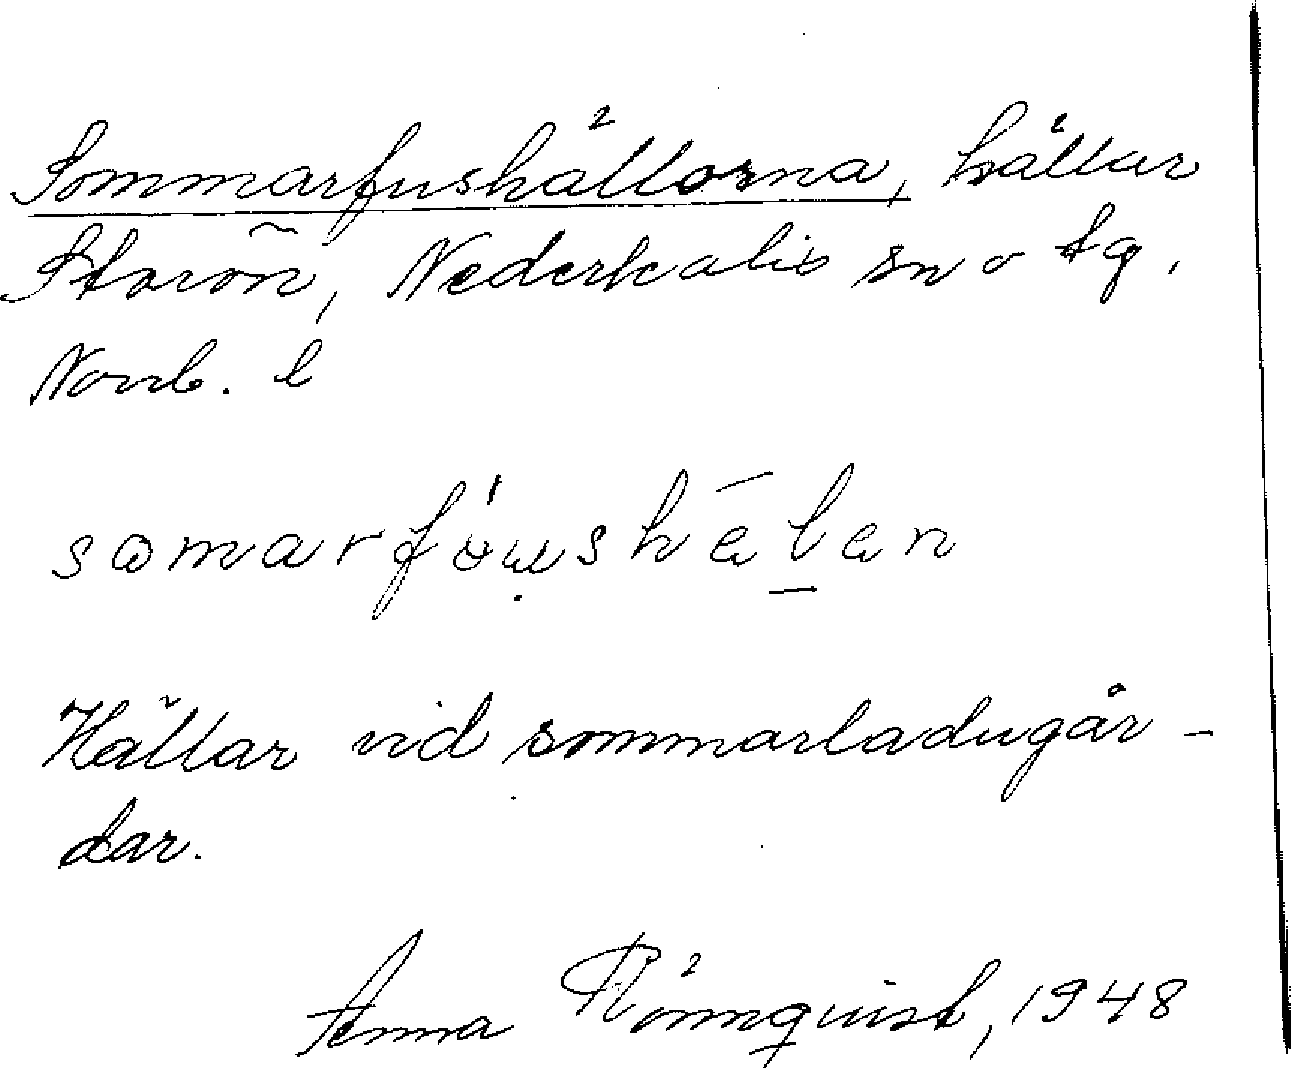 Sommarfushällorna, hällar
Storön, Nederkalix sn o tg,
Norrb. l
somarföushälan
Hällar vid sommarladugår-
dar.
Anna Rönnquist, 1948